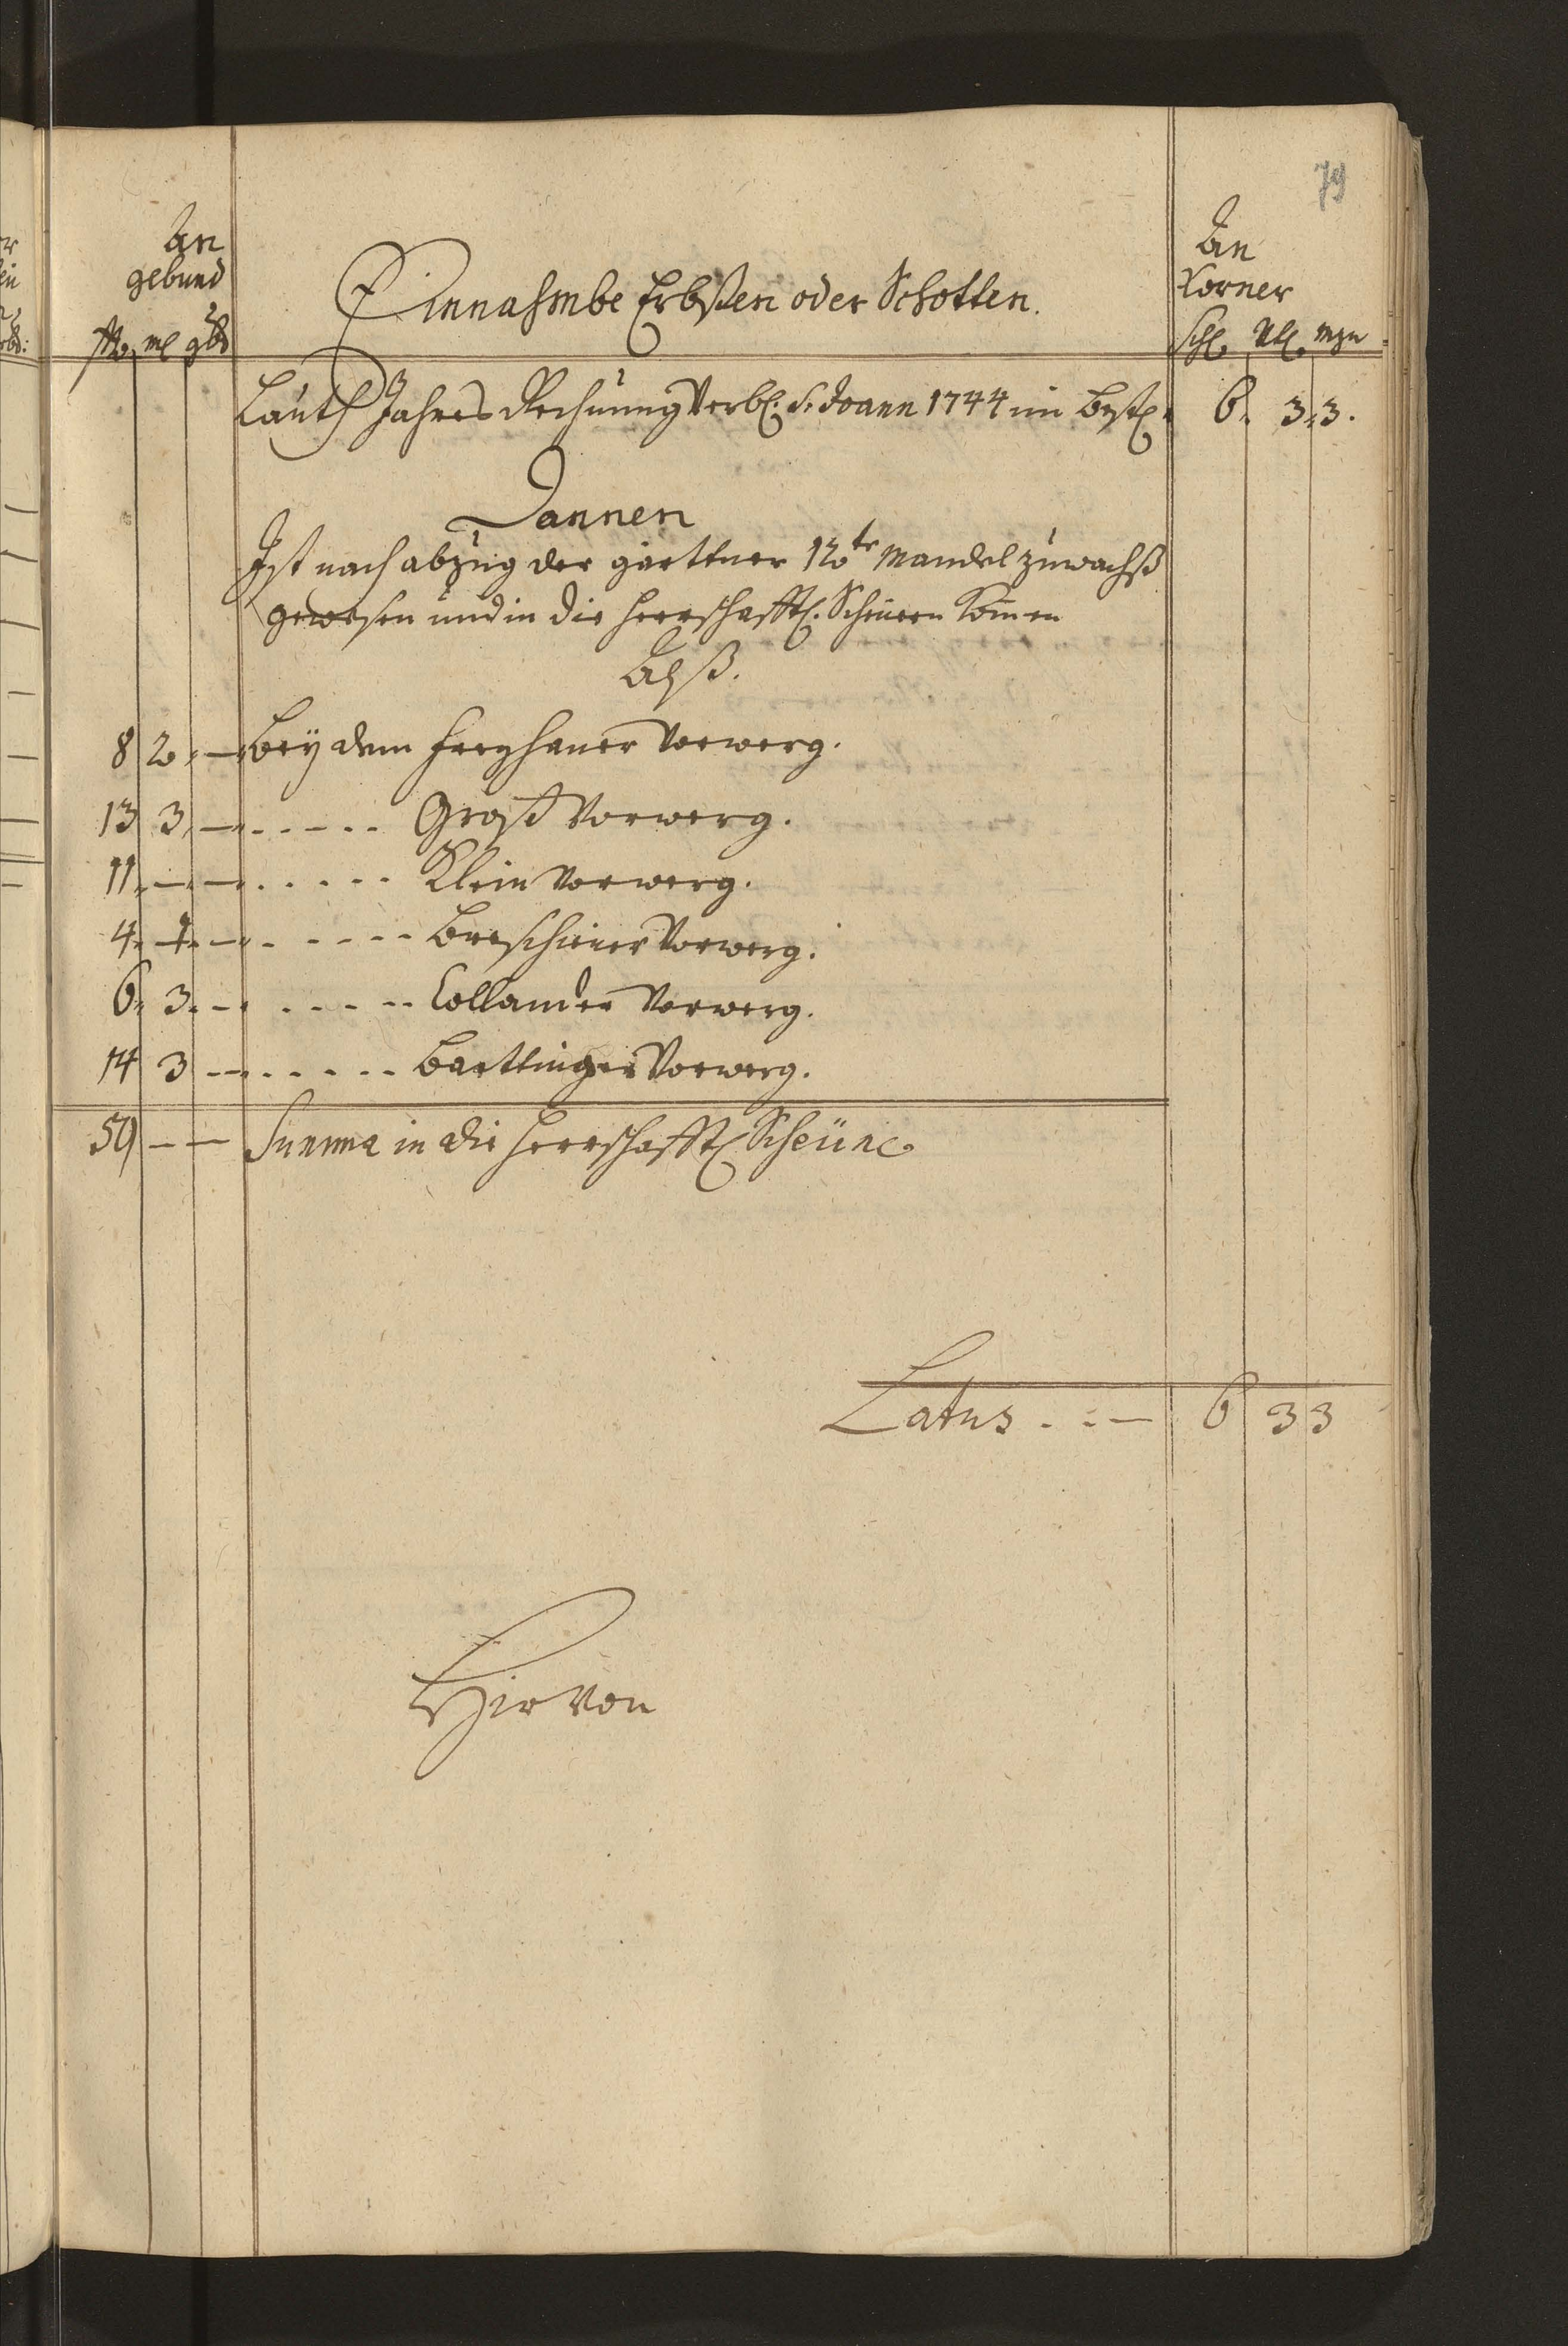 79
An gebund
An Korner
Einnahmbe Erbßen oder Schotten.
ßo. ml gbd
Schl. Vtl. mzn
Lauth Jahres Rechnung Verbl. S. Joann 1744 im Bestl. 6. 3. 3.
Dannen
Ist nach abzug der gärttner 12te Mandel zuwachß
gewesen und in die herrschafftl. Scheuern komen
Alß.
8 2 — Bey dem Vorwerg.
13 3 — Groß Vorwerg.
11. — — Klein Vorwerg.
4. 1. — Vorwerg.
6. 3. — Collander Vorwerg.
14 3 — Barttinger Vorwerg.
59 — — Summa in die herrschafftl Scheüne.
Latus . . — 6 3 3
Hiervon